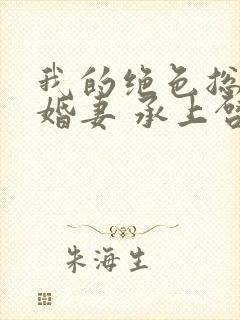 我的绝色总
婚妻 承上启
朱海生